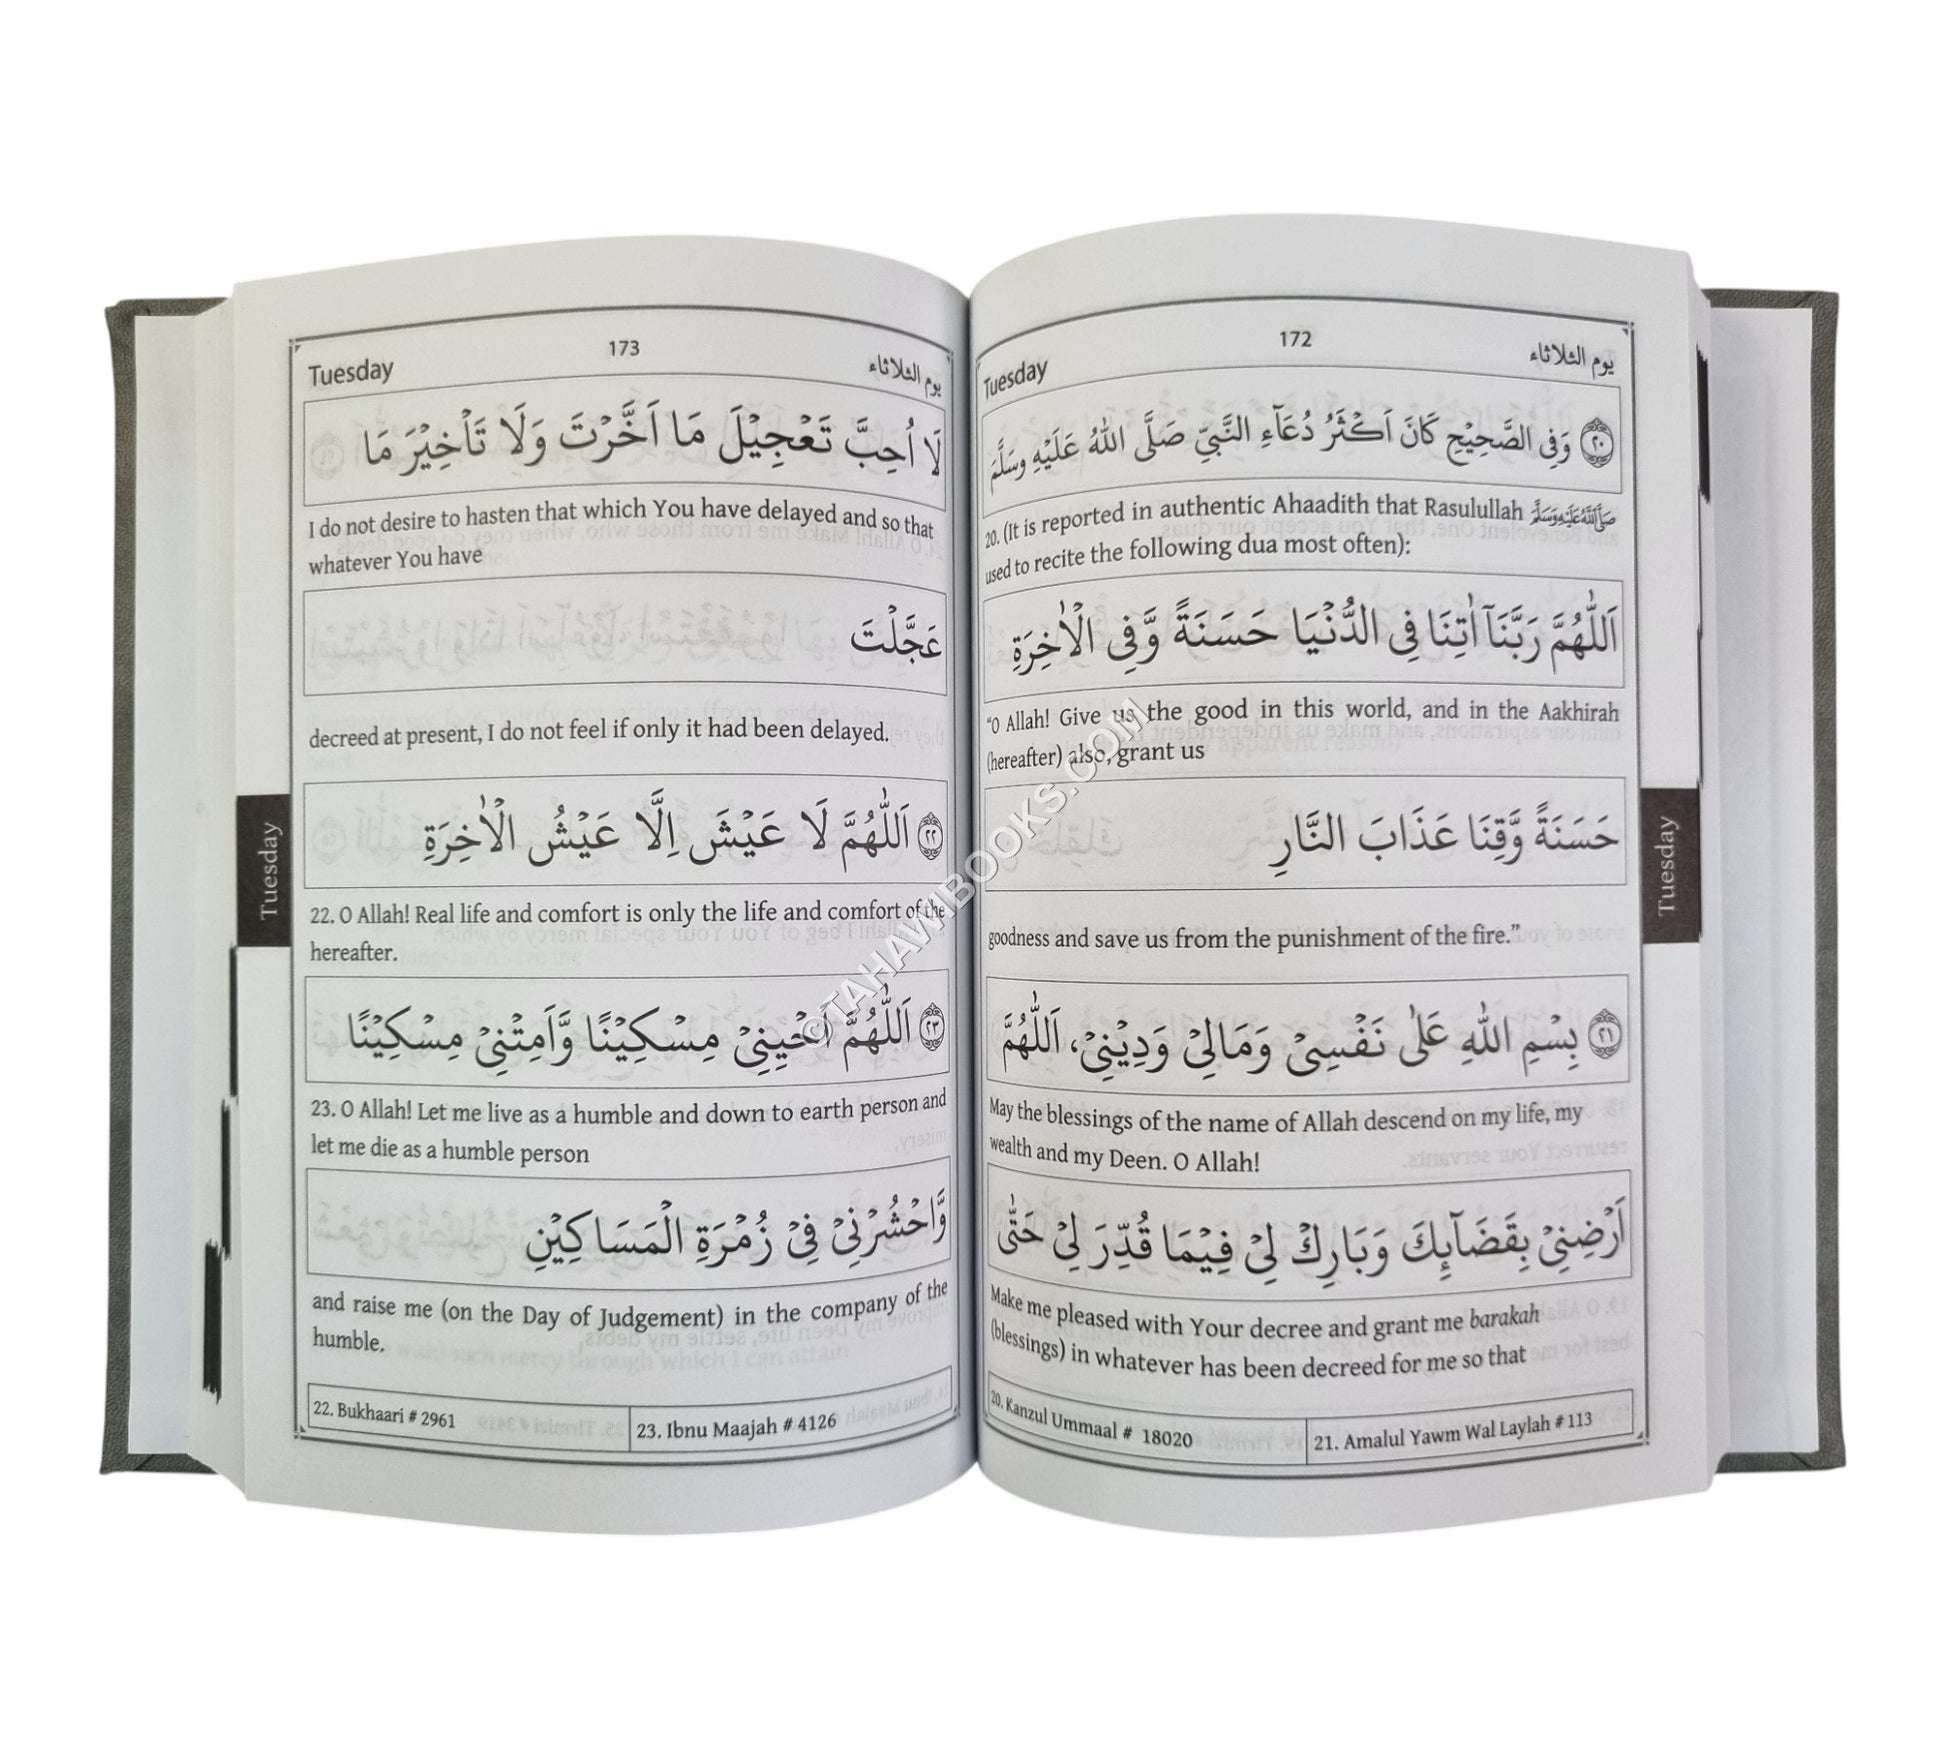 Tuesday 172 يوم الثلاثاء
۲۰ وَفِي الصَّحِيْحِ كَانَ اَكْثَرُ دُعَآءِ النَّبِيِّ صَلَّى اللّٰهُ عَلَيْهِ وسَلَّمَ
20. (It is reported in authentic Ahaadith that Rasulullah ﷺ
used to recite the following dua most often):
اَللّٰهُمَّ رَبَّنَآ اٰتِنَا فِي الدُّنْيَا حَسَنَةً وَّفِي الْاٰخِرَةِ
“O Allah! Give us the good in this world, and in the Aakhirah
(hereafter) also, grant us
حَسَنَةً وَّقِنَا عَذَابَ النَّارِ
goodness and save us from the punishment of the fire.”
۲۱ بِسْمِ اللّٰهِ عَلٰى نَفْسِيْ وَمَالِيْ وَدِيْنِيْ، اَللّٰهُمَّ
May the blessings of the name of Allah descend on my life, my
wealth and my Deen. O Allah!
اَرْضِنِيْ بِقَضَآئِكَ وَبَارِكْ لِيْ فِيْمَا قُدِّرَ لِيْ حَتّٰى
Make me pleased with Your decree and grant me barakah
(blessings) in whatever has been decreed for me so that
20. Kanzul Ummaal # 18020
21. Amalul Yawm Wal Laylah # 113
Tuesday
Tuesday 173 يوم الثلاثاء
لَا اُحِبَّ تَعْجِيْلَ مَا اَخَّرْتَ وَلَا تَأْخِيْرَ مَا
I do not desire to hasten that which You have delayed and so that
whatever You have
عَجَّلْتَ
decreed at present, I do not feel if only it had been delayed.
۲۲ اَللّٰهُمَّ لَا عَيْشَ اِلَّا عَيْشُ الْاٰخِرَةِ
22. O Allah! Real life and comfort is only the life and comfort of the
hereafter.
۲۳ اَللّٰهُمَّ اَحْيِنِيْ مِسْكِيْنًا وَّاَمِتْنِيْ مِسْكِيْنًا
23. O Allah! Let me live as a humble and down to earth person and
let me die as a humble person
وَّاحْشُرْنِيْ فِيْ زُمْرَةِ الْمَسَاكِيْنِ
and raise me (on the Day of Judgement) in the company of the
humble.
22. Bukhaari # 2961
23. Ibnu Maajah # 4126
Tuesday
©TAHAWIBOOKS.COM